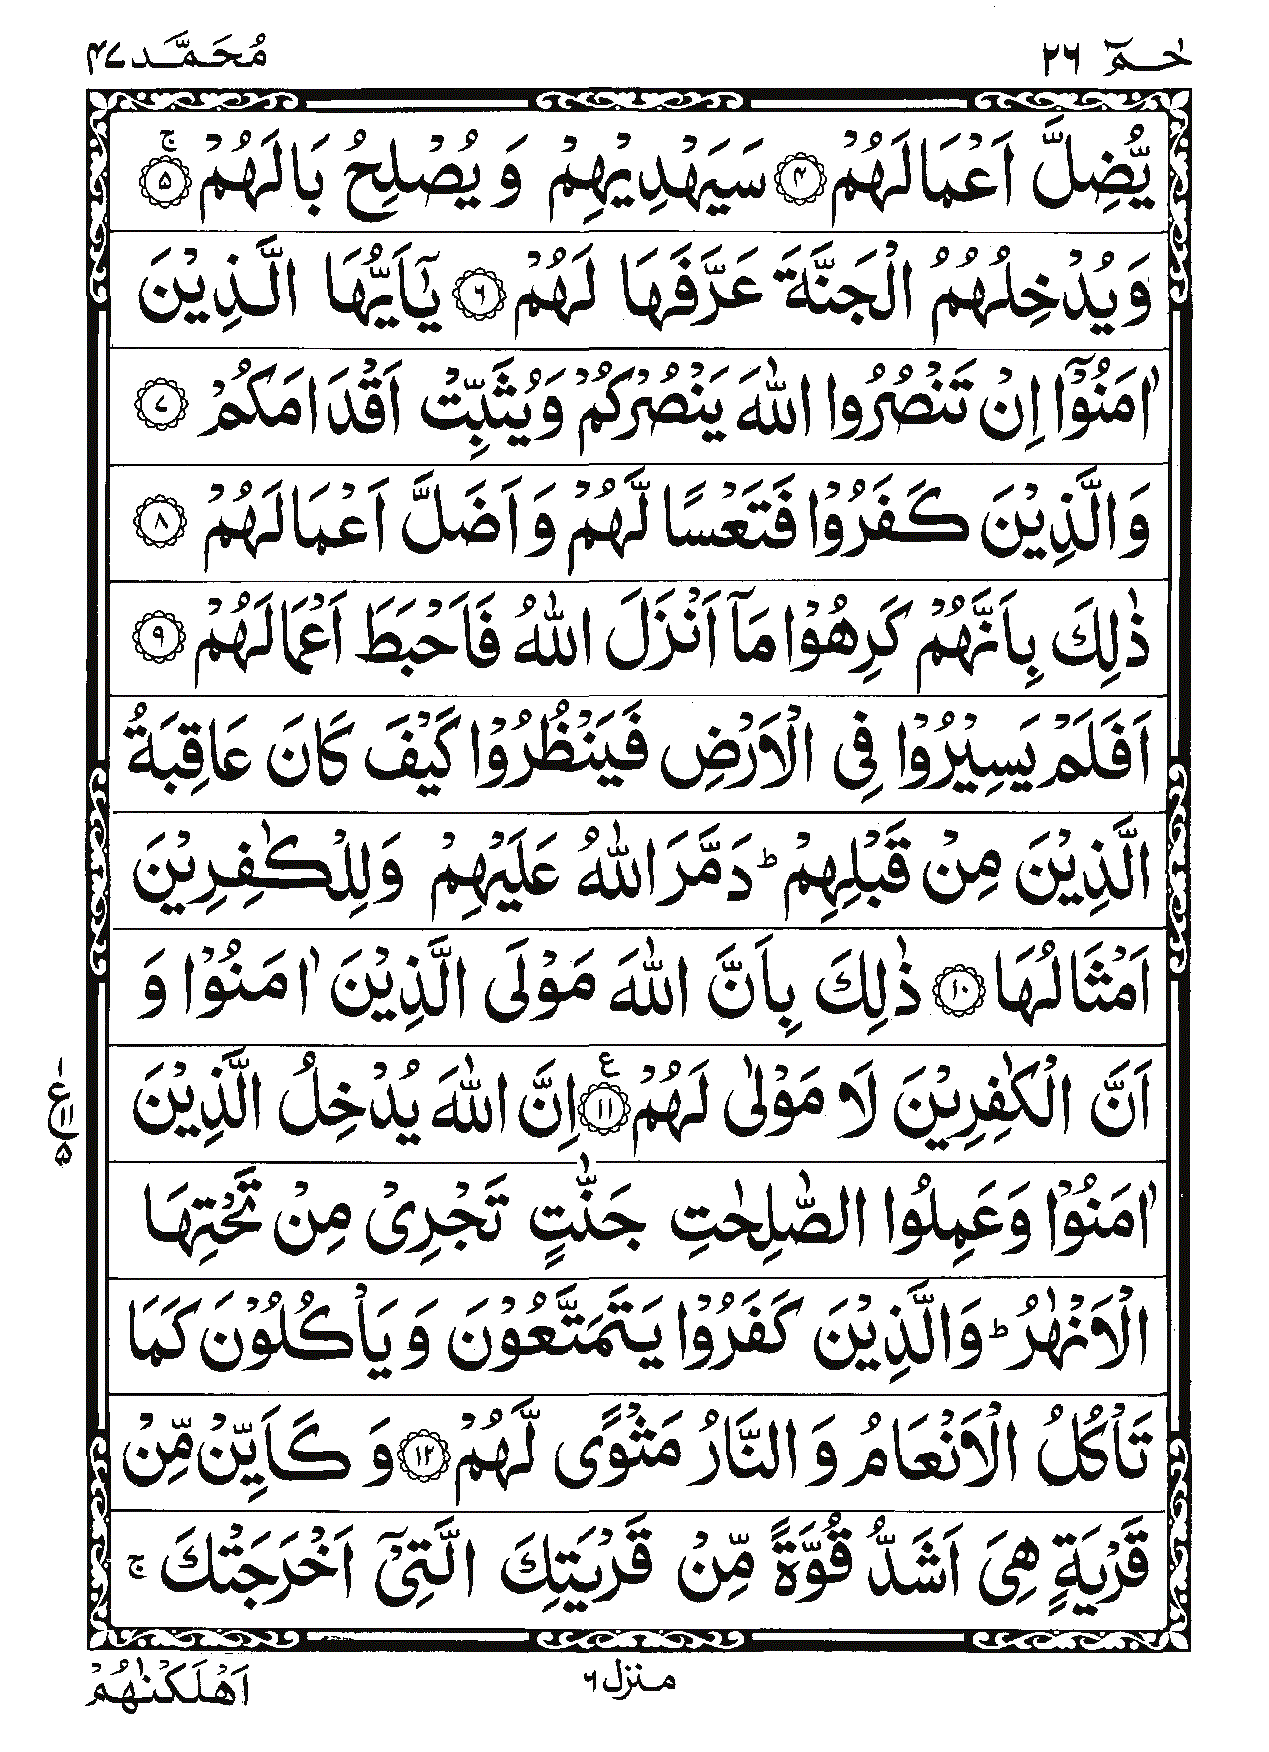 حٰمٓ ٢٦
مُحَمَّد ٤٧
يُّضِلَّ اَعْمَالَهُمْ ﴿٤﴾ سَيَهْدِيْهِمْ وَ يُصْلِحُ بَالَهُمْ ﴿٥﴾ ۚ
وَيُدْخِلُهُمُ الْجَنَّةَ عَرَّفَهَا لَهُمْ ﴿٦﴾ يٰٓاَيُّهَا الَّذِيْنَ
اٰمَنُوْٓا اِنْ تَنْصُرُوا اللّٰهَ يَنْصُرْكُمْ وَيُثَبِّتْ اَقْدَامَكُمْ ﴿٧﴾
وَالَّذِيْنَ كَفَرُوْا فَتَعْسًا لَّهُمْ وَ اَضَلَّ اَعْمَالَهُمْ ﴿٨﴾
ذٰلِكَ بِاَنَّهُمْ كَرِهُوْا مَآ اَنْزَلَ اللّٰهُ فَاَحْبَطَ اَعْمَالَهُمْ ﴿٩﴾
اَفَلَمْ يَسِيْرُوْا فِى الْاَرْضِ فَيَنْظُرُوْا كَيْفَ كَانَ عَاقِبَةُ
الَّذِيْنَ مِنْ قَبْلِهِمْ ؕ دَمَّرَ اللّٰهُ عَلَيْهِمْ وَلِلْكٰفِرِيْنَ
اَمْثَالُهَا ﴿١٠﴾ ذٰلِكَ بِاَنَّ اللّٰهَ مَوْلَى الَّذِيْنَ اٰمَنُوْا وَ
اَنَّ الْكٰفِرِيْنَ لَا مَوْلٰى لَهُمْ ﴿١١﴾ ع اِنَّ اللّٰهَ يُدْخِلُ الَّذِيْنَ
١ ع ١١ ٥
اٰمَنُوْا وَعَمِلُوا الصّٰلِحٰتِ جَنّٰتٍ تَجْرِىْ مِنْ تَحْتِهَا
الْاَنْهٰرُ ؕ وَالَّذِيْنَ كَفَرُوْا يَتَمَتَّعُوْنَ وَ يَاْكُلُوْنَ كَمَا
تَاْكُلُ الْاَنْعَامُ وَ النَّارُ مَثْوًى لَّهُمْ ﴿١٢﴾ وَ كَاَيِّنْ مِّنْ
قَرْيَةٍ هِىَ اَشَدُّ قُوَّةً مِّنْ قَرْيَتِكَ الَّتِىْٓ اَخْرَجَتْكَ ۚ
منزل ٦
اَهْلَكْنٰهُمْ